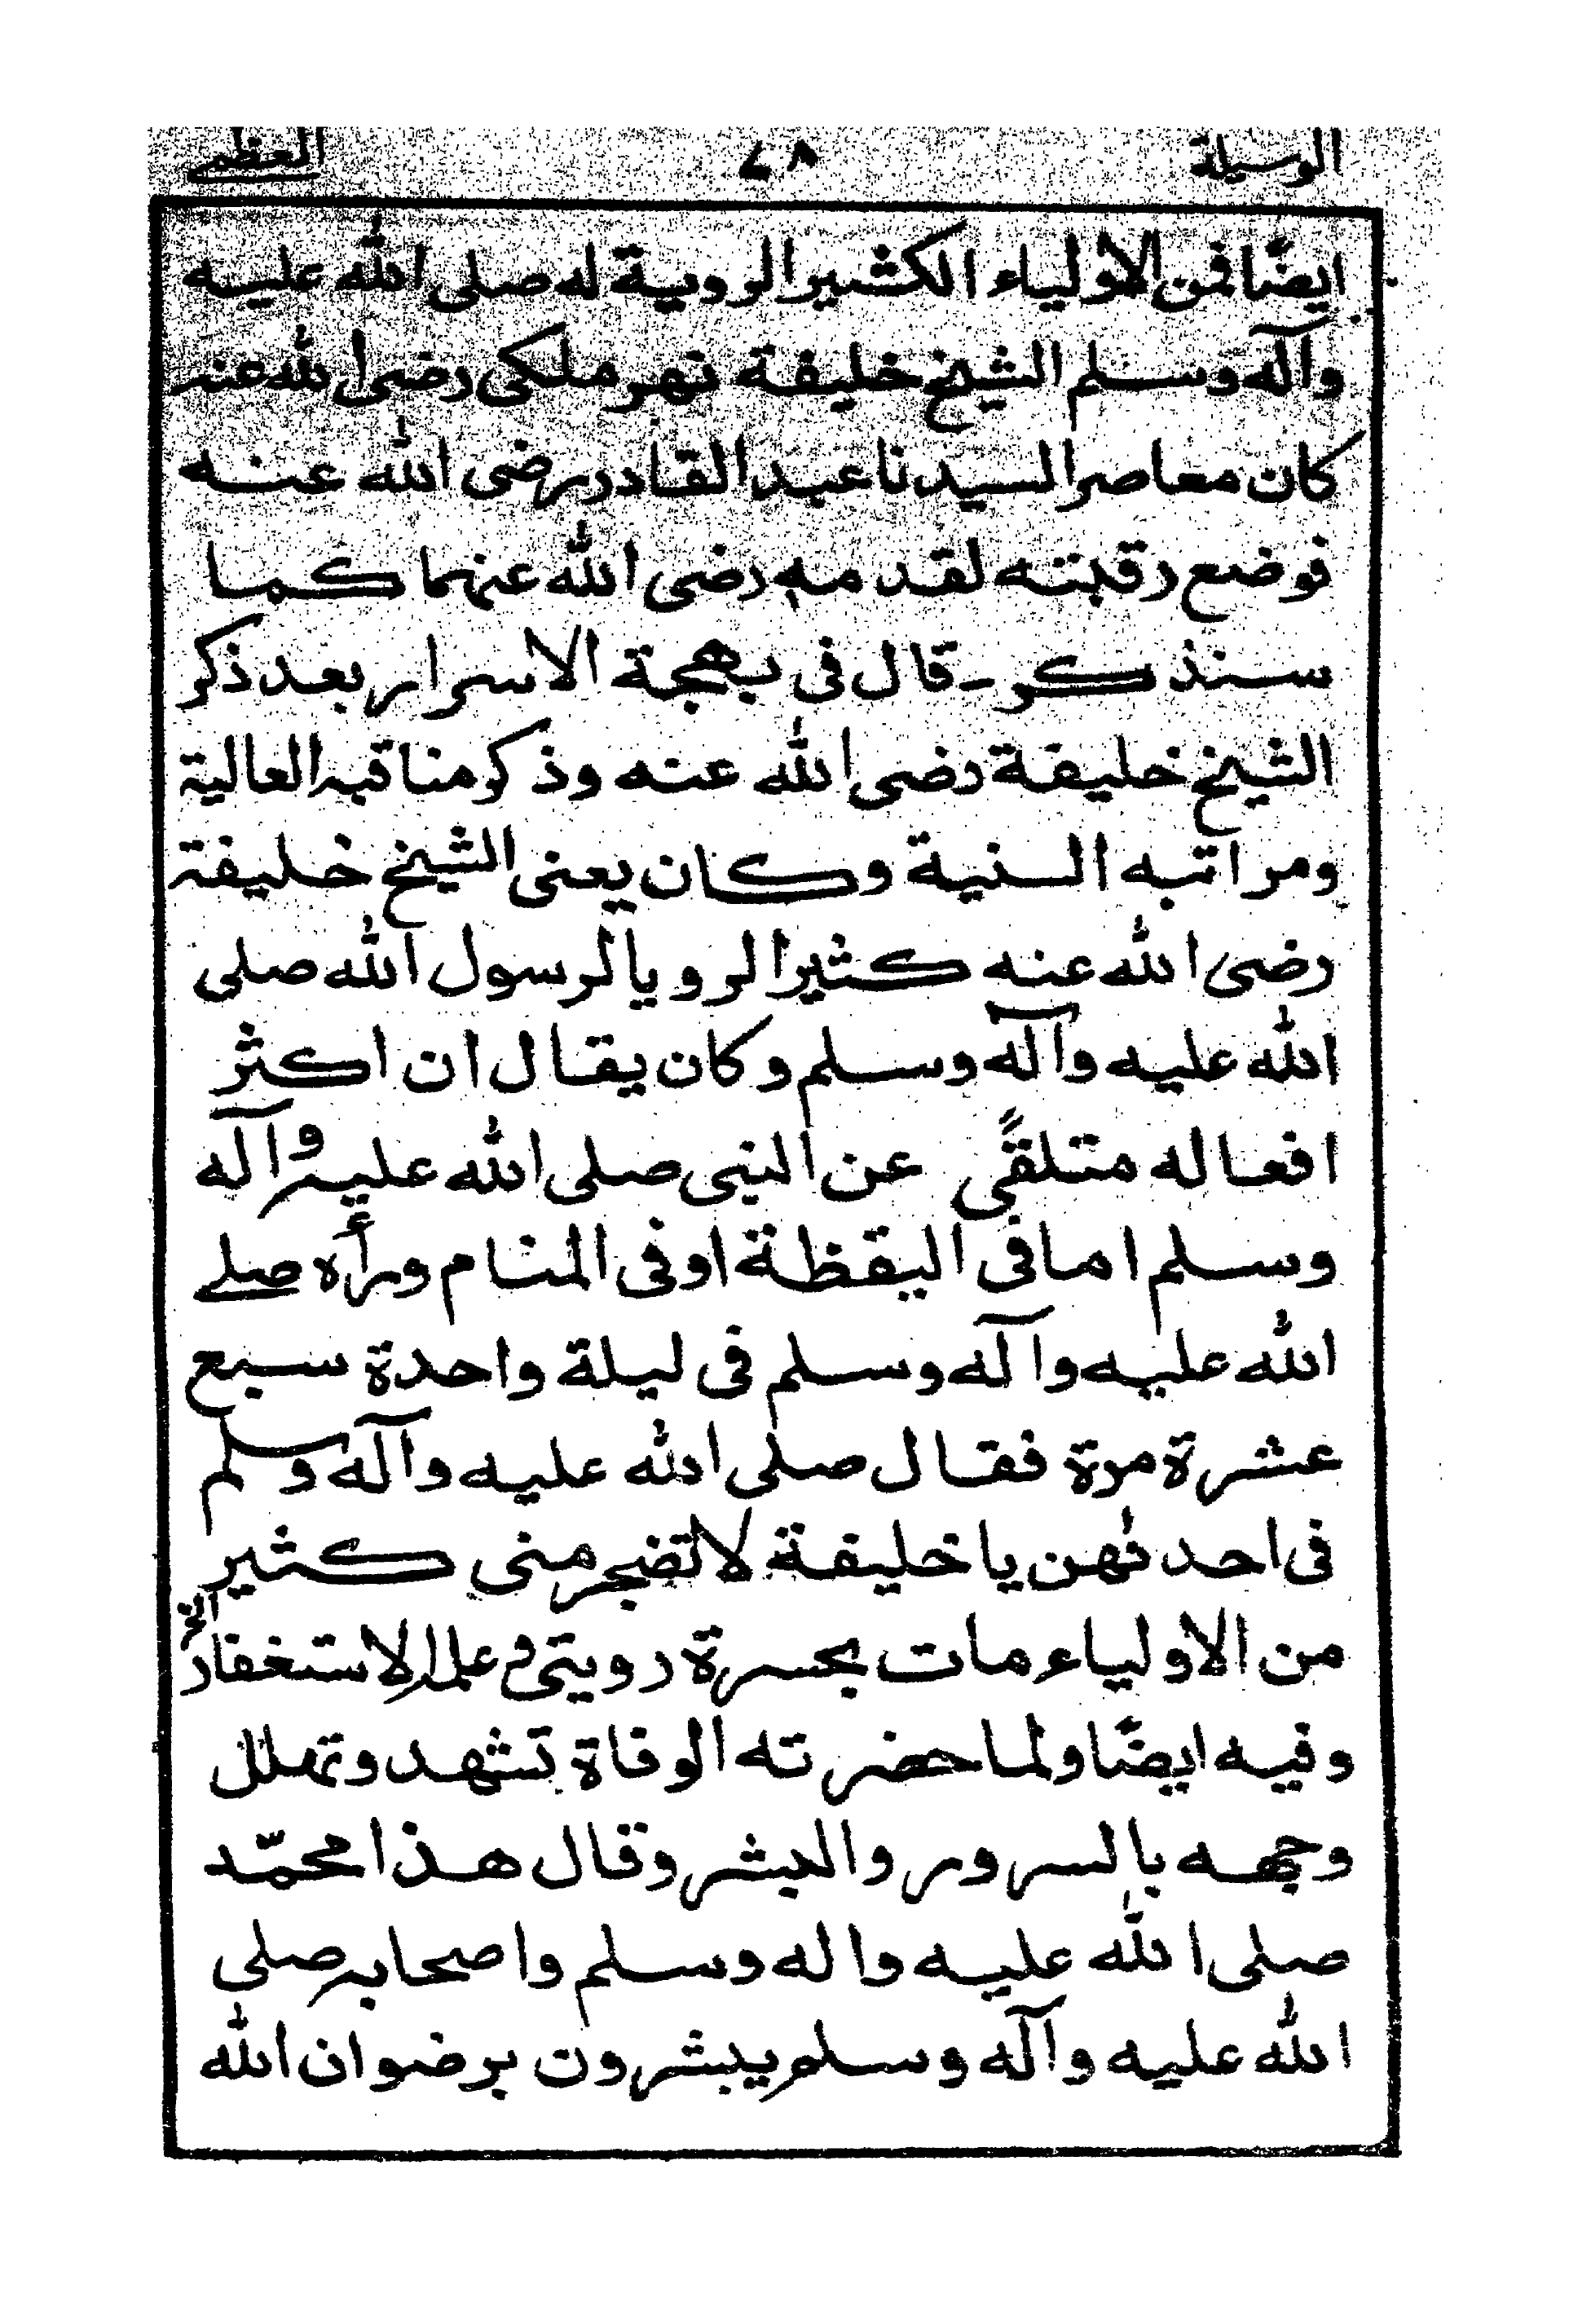 الوسيلة ٧٨ العظمى
ايضًا فمن الاولياء الكثير الروية له صلى الله عليه
وآله وسلم الشيخ خليفة نهر ملكى رضى الله عنه
كان معاصر السيدنا عبد القادر رضى الله عنه
فوضع رقبته لقدمه رضى الله عنهما كما
سنذكر - قال فى بهجة الاسرار بعد ذكر
الشيخ خليفة رضى الله عنه وذكر مناقبه العالية
ومراتبه السنية وكان يعنى الشيخ خليفة
رضى الله عنه كثير الرويا لرسول الله صلى
الله عليه وآله وسلم وكان يقال ان اكثر
افعاله متلقًى عن النبى صلى الله عليه وآله
وسلم اما فى اليقظة او فى المنام ورأه صلے
الله عليه وآله وسلم فى ليلة واحدة سبع
عشرة مرة فقال صلى الله عليه وآله وسلم
فى احد نهن يا خليفة لا تضجر منى كثير
من الاولياء مات بحسرة رويتى و الاستغفار الخ
وفيه ايضًا ولما حضرته الوفاة تشهد وتهلل
وجهه بالسرور والبشر وقال هذا محمّد
صلى الله عليه واله وسلم واصحابه صلى
الله عليه وآله وسلم يبشرون برضوان الله